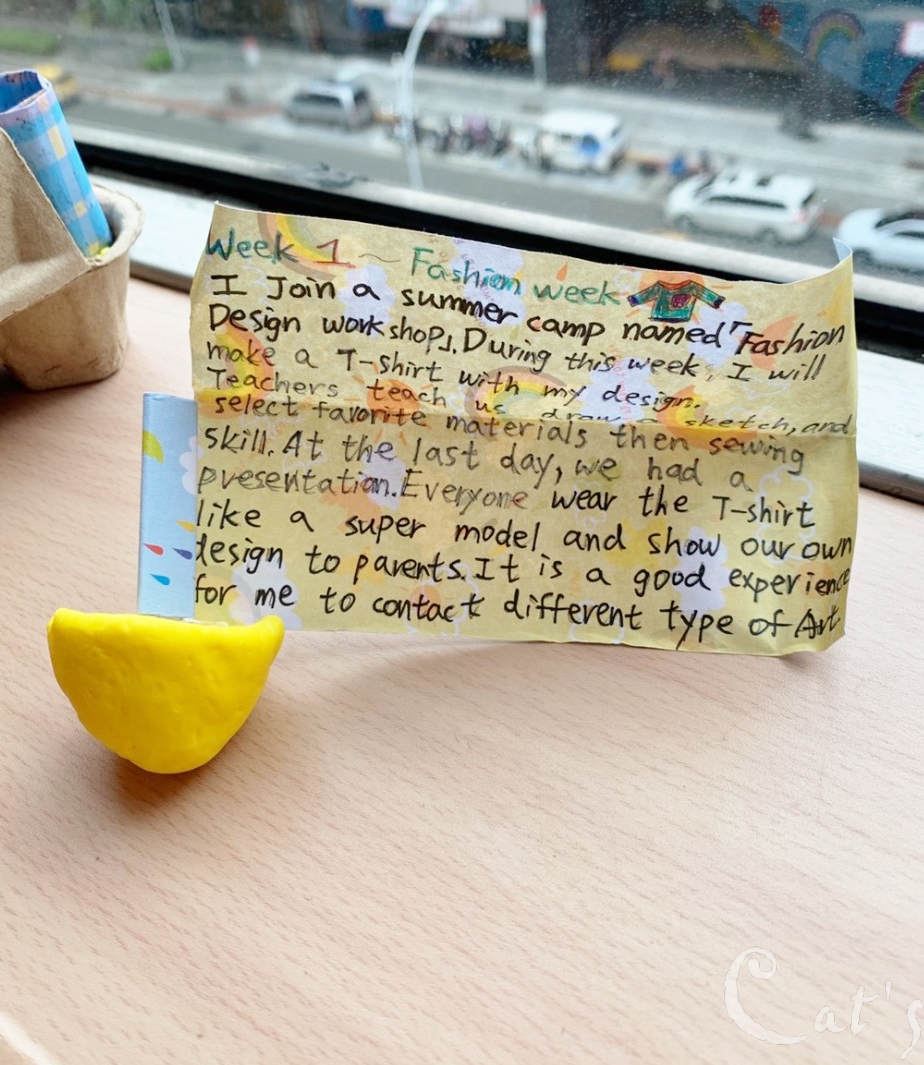 Week 1 ~ Fashion week
I Join a summer camp named「Fashion
Design workshop」. During this week, I will
make a T-shirt with my design.
Teachers teach us draw a sketch, and
select favorite materials then sewing
skill. At the last day, we had a
presentation. Everyone wear the T-shirt
like a super model and show our own
design to parents. It is a good experience
for me to contact different type of Art
Cat's